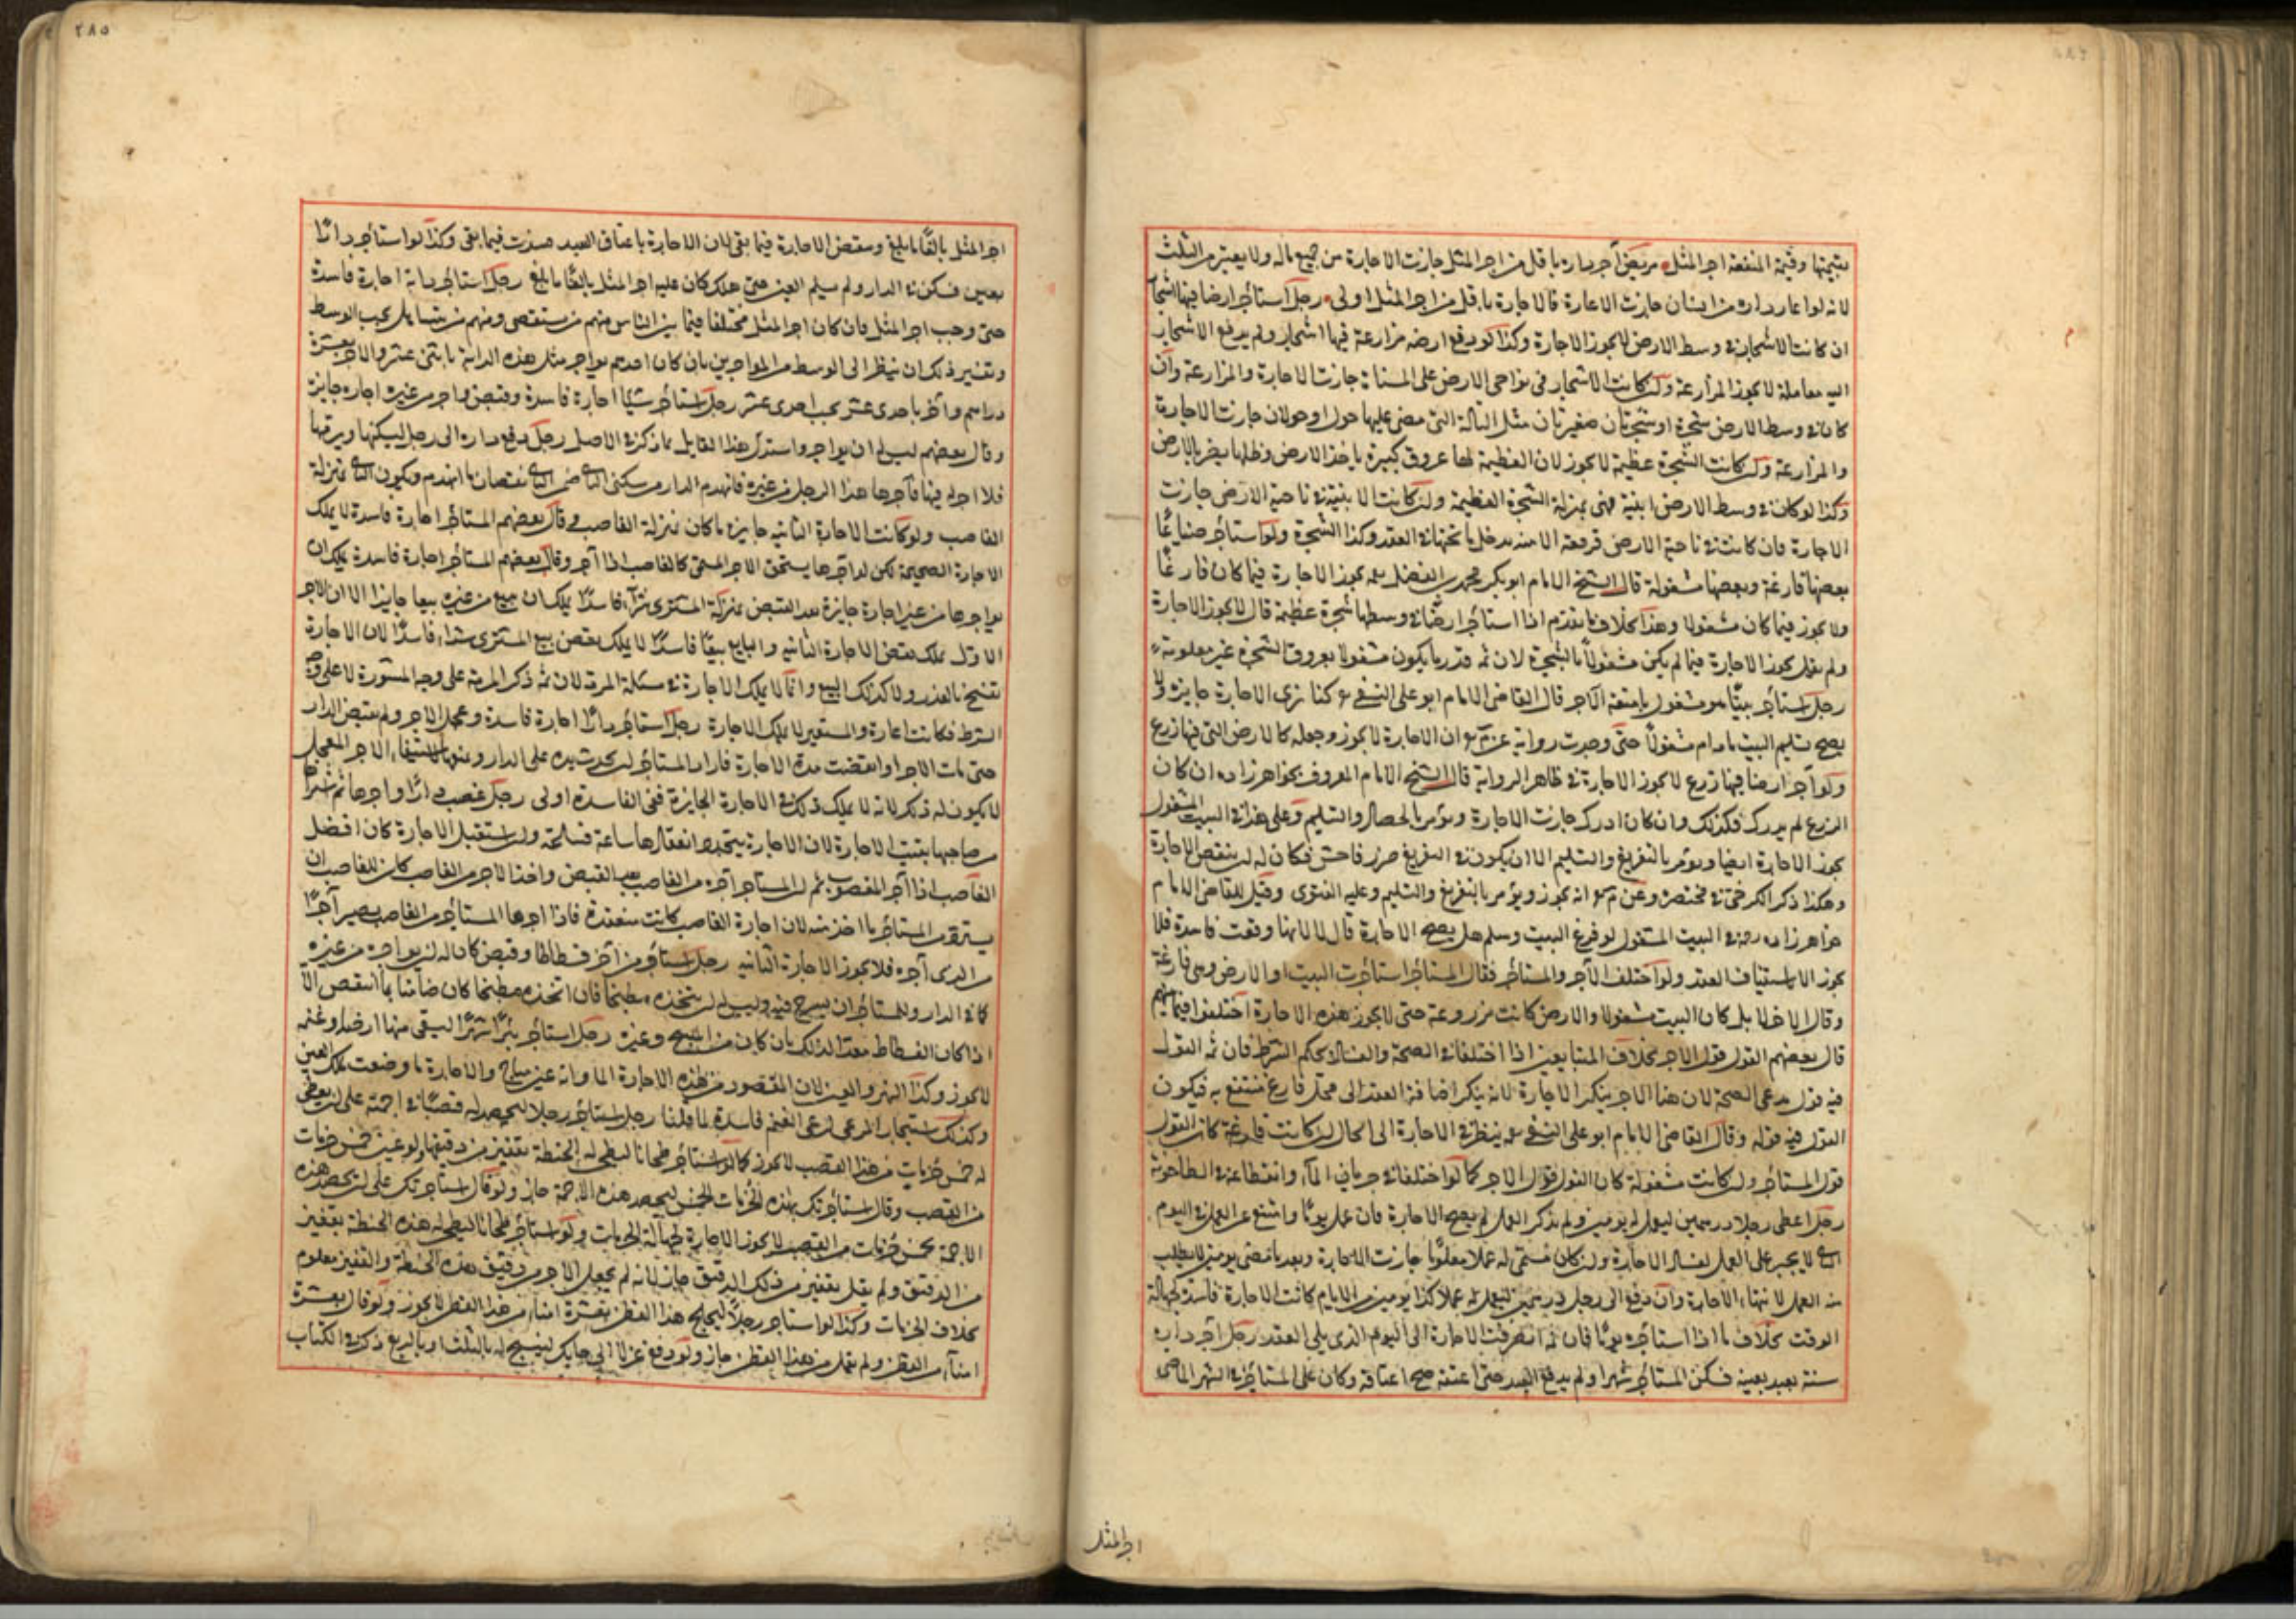 بقيمتها وقيمة المنفعة اجر المثل مريض آجر داره باقل من اجر المثل جازت الاجارة من جميع ماله ولا يعتبر من الثلث
لانه لو اعار داره من انسان جازت الاعارة فالاجارة باقل من اجر المثل اولى رجل استأجر ارضا فيها اشجار
ان كانت الاشجار في وسط الارض لا يجوز الاجارة وكذا لو دفع ارضه مزارعة فيها اشجار ولم يدفع الاشجار
اليه معاملة لا يجوز المزارعة وان كانت الاشجار في نواحي الارض على المسناة جازت الاجارة والمزارعة وان
كان في وسط الارض شجرة او شجرتان صغيرتان مثل التالة التي مضى عليها حول او حولان جازت الاجارة
والمزارعة وان كانت الشجرة عظيمة لا يجوز لان العظيمة لها عروق كبيرة ياخذ الارض وظلها يضر بالارض
وكذا لو كان في وسط الارض ابنية فهي بمنزلة الشجرة العظيمة وان كانت الابنية في ناحية الارض جازت
الاجارة فان كانت في ناحية الارض فرقعة الابنية يدخل ما تحتها في العقد وكذا الشجرة ولو استأجر ضياعًا
بعضها فارغة وبعضها مشغولة قال الشيخ الامام ابو بكر محمد بن الفضل يجوز الاجارة فيما كان فارغًا
ولا يجوز فيما كان مشغولا وهذا بخلاف ما تقدم اذا استأجر ارضا في وسطها شجرة عظيمة قال لا يجوز الاجارة
ولم يقل يجوز الاجارة فيما لم يكن مشغولا بالشجرة لان ثمه قدر ما يكون مشغولا بعروق الشجرة غير معلومة
رجل استأجر بيتًا هو مشغول بامتعة الآجر قال القاضي الامام ابو علي النسفي كنا نرى الاجارة جايزة ولا
يصح تسليم البيت ما دام مشغولا حتى وجدت رواية عن ان الاجارة لا يجوز وجعله كالارض التي فيها زرع
ولو آجر ارضا فيها زرع لا يجوز الاجارة في ظاهر الرواية قال الشيخ الامام المعروف بخواهرزاده ان كان
الزرع لم يدرك فكذلك وان كان ادرك جازت الاجارة ويؤمر بالحصاد والتسليم وعلى هذا في البيت المشغول
يجوز الاجارة ايضا ويؤمر بالتفريغ والتسليم الا ان يكون في التفريغ ضرر فاحش فكان له ان ينقض الاجارة
وهكذا ذكر الكرخي في مختصره وعن انه يجوز ويؤمر بالتفريغ والتسليم وعليه الفتوى وقيل للقاضي الامام
خواهرزاده في البيت المشغول لو فرغ البيت وسلم هل يصح الاجارة قال لا لانها وقعت فاسدة فلا
يجوز الا باستيناف العقد ولو اختلف الآجر والمستأجر فقال المستأجر استأجرت البيت او الارض وهي فارغة
وقال الاخر لا بل كان البيت مشغولا والارض كانت مزروعة حتى لا يجوز هذه الاجارة اختلفوا فيما بينهم
قال بعضهم القول قول الاجر بخلاف المتبايعين اذا اختلفا في الصحة والفساد بحكم الشرط فان ثمه القول
فيه قول مدعي الصحة لان هنا الاجر ينكر الاجارة لانه ينكر اضافة العقد الى محل فارغ منتفع به فيكون
القول فيه قوله وقال القاضي الامام ابو علي النسفي ينظر في الاجارة الى الحال ان كانت فارغة كان القول
قول المستأجر وان كانت مشغولة كان القول قول الاجر كما لو اختلفا في جريان الماء وانقطاعه في الطاحونة
رجل اعطى رجلا درهمين ليعمل له يومين ولم يذكر العمل لم يصح الاجارة فان عمل يومًا وامتنع عن العمل في اليوم
الثاني لا يجبر على العمل لفساد الاجارة وان كان سمى له عملا معلومًا جازت الاجارة وبعد ما مضى يومين لا يطلب
منه العمل لانتهاء الاجارة وان دفع الى رجل درهمين ليعمل له عملا كذا يومين من الايام كانت الاجارة فاسدة لجهالة
الوقت بخلاف ما اذا استأجره يومًا فان ثمه انصرفت الاجارة الى اليوم الذي يلي العقد رجل آجر داره
سنة بعبد بعينه فسكن المستأجر شهرا ولم يدفع العبد حتى اعتقه صح اعتاقه وكان على المستأجر في الشهر الماضي
اجر المثل
٢٨٥
اجر المثل بالغًا ما بلغ وينقض الاجارة فيما بقي لان الاجارة باعتاق العبد فسدت فيما بقي وكذا لو استأجر دارًا
بعين فسكن في الدار ولم يسلم العين حتى هلك كان عليه اجر المثل بالغًا ما بلغ رجل استأجر دابة اجارة فاسدة
حتى وجب اجر المثل فان كان اجر المثل مختلفا فيما بين الناس منهم من يستقصي ومنهم من يتساهل يجب الوسط
وتفسير ذلك ان ينظر الى الوسط من المواجرين بان كان احدهم يواجر مثل هذه الدابة باثني عشر والاخر بعشرة
دراهم وآخر باحدى عشر يجب احدى عشر رجل استأجر شيئا اجارة فاسدة وقبض فواجر من غيره اجارة جايزة
وقال بعضهم ليس له ان يواجر واستدل هذا القايل بما ذكر في الاصل رجل دفع داره الى رجل ليسكنها ويرمها
فلا اجر له فيها فآجرها هذا الرجل من غيره فانهدم الدار من سكنى الثاني ضمن الثاني نقصان ما انهدم ويكون الثاني بمنزلة
الغاصب ولو كانت الاجارة الثانية جايزة ما كان بمنزلة الغاصب وقال بعضهم المستأجر اجارة فاسدة لا يملك
الاجارة الصحيحة لكن لو آجرها يستحق الاجر المسمى كالغاصب اذا آجر وقال بعضهم المستأجر اجارة فاسدة يملك ان
يواجرها من غيره اجارة جايزة بعد القبض بمنزلة المشتري شراء فاسدًا يملك ان يبيع من غيره بيعا جايزا الا ان الاجر
الاول يملك نقض الاجارة الثانية والبايع بيعًا فاسدًا لا يملك نقض بيع المشتري شراء فاسدًا لان الاجارة
تفسخ بالعذر ولا كذلك البيع وانما لا يملك الاجارة في مسئلة المرمة لان ثمه ذكر المرمة على وجه المشورة لا على وجه
الشرط فكانت اعارة والمستعير لا يملك الاجارة رجل استأجر دارًا اجارة فاسدة وعجل الاجر ولم يقبض الدار
حتى مات الاجر او انقضت مدة الاجارة فاراد المستأجر ان يحدث يده على الدار ويمنعها لاستيفاء الاجر المعجل
لا يكون له ذلك لانه لا يملك ذلك في الاجارة الجايزة ففي الفاسدة اولى رجل غصب دارًا واجرها ثم اشترى
من صاحبها بقيت الاجارة لان الاجارة يتجدد انعقادها ساعة فساعة وان استقبل الاجارة كان افضل
الغاصب اذا آجر المغصوب ثم ان المستأجر آجره من الغاصب بعد القبض واخذ الاجر من الغاصب كان للغاصب ان
يسترد من المستأجر ما اخذ منه لان اجارة الغاصب كانت منعقدة فاذا اجرها المستأجر من الغاصب يصير آجرًا
من الذي آجره فلا يجوز الاجارة الثانية رجل استأجر من آخر فسطاطا وقبض كان له ان يواجره من غيره
كما في الدار وللمستأجر ان يسرج فيه وليس له ان يتخذه مطبخا فان اتخذه مطبخا كان ضامنا بما انتقص الا
اذا كان الفسطاط معدا لذلك بان كان من المسح وغيره رجل استأجر بئرًا شهرًا ليسقي منها ارضه وغنمه
لا يجوز وكذا النهر والعين لان المقصود من هذه الاجارة الماء وانه عين مباح والاجارة ما وضعت لتملك العين
وكذلك استيجار المرعى لرعي الغنم فاسدة لما قلنا رجل استأجر رجلا ليحصد له قصبًا في اجمته على ان يعطي
له خمس حزمات من هذا القصب لا يجوز كما لو استأجر طحانا ليطحن له الحنطة بقفيز من دقيقها ولو عين خمس حزمات
من القصب وقال استأجرتك بهذه الحزمات الخمس ليحصد هذه الاجمة جاز ولو قال استأجرتك على ان تحصد هذه
الاجمة بخمس حزمات من القصب لا يجوز الاجارة لجهالة الحزمات ولو استأجر طحانا ليطحن له هذه الحنطة بقفيز
من الدقيق ولم يقل بقفيز من ذلك الدقيق جاز لانه لم يجعل الاجر من دقيق هذه الحنطة والقفيز معلوم
بخلاف الحزمات وكذا لو استاجر رجلا ليحلج هذا القطن بعشرة امناء من هذا القطن لا يجوز ولو قال بعشرة
امناء من القطن ولم يقل من هذا القطن جاز ولو دفع غزلا الى حايك لينسج له بالثلث او بالربع ذكر في الكتاب